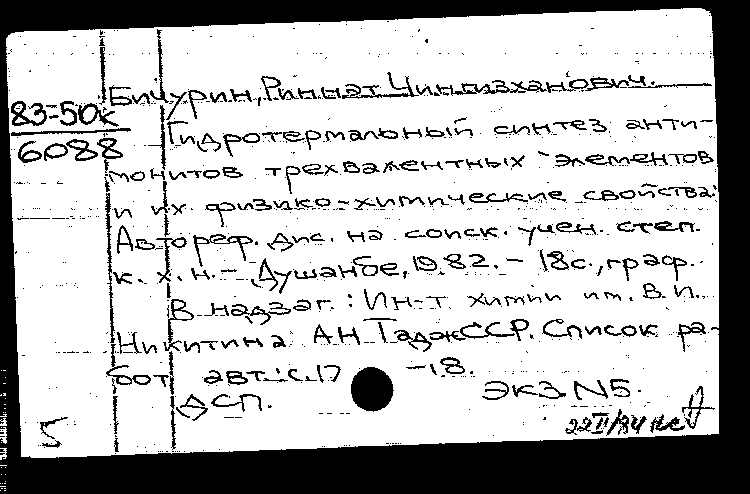 Бичурин, Риннат Чингизханович.
83-50к
6088
Гидротермальный синтез анти-
монитов трехвалентных элементов
и их физико-химические свойства:
Автореф. дис. на соиск. учен. степ.
к. х. н. - Душанбе, 1982. - 18 с., граф.
В надзаг.: Ин-т химии им. В. И.
Никитина АН ТаджССР. Список ра-
бот авт.: с. 17-18.
ДСП.
Экз. N5.
5
22 II/84